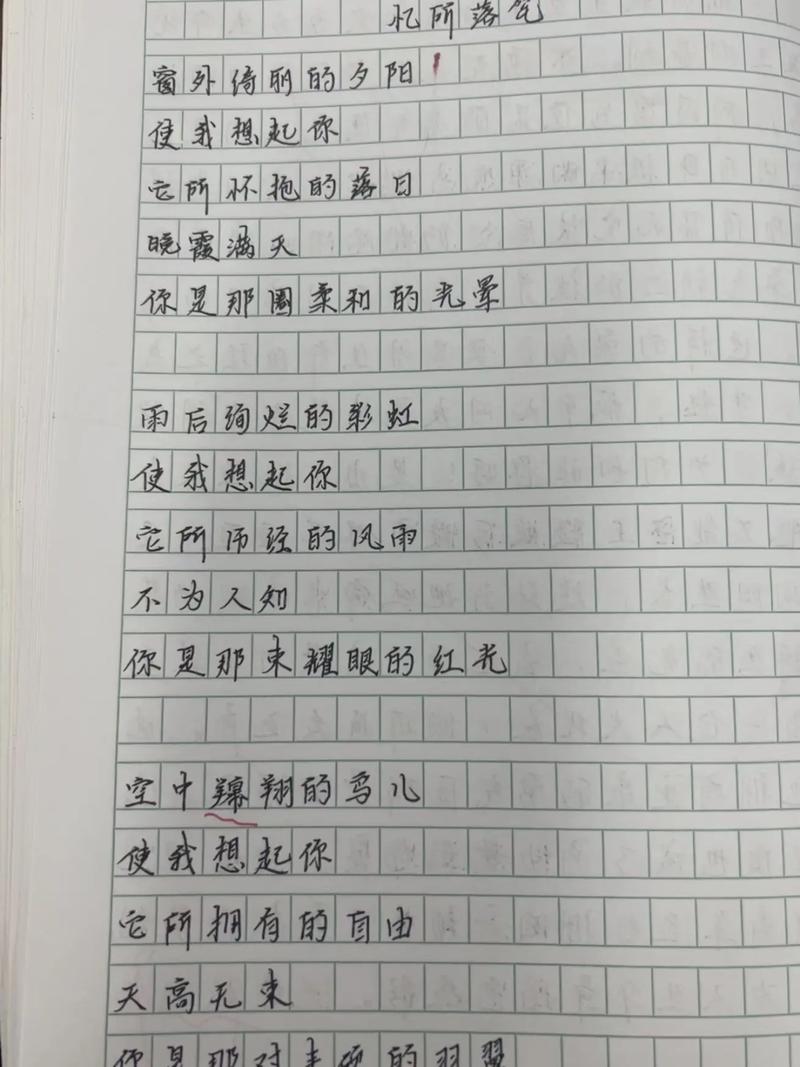 忆所落笔
窗外绮丽的夕阳
使我想起你
它所怀抱的落日
晚霞满天
你是那圈柔和的光晕
雨后绚烂的彩虹
使我想起你
它所历经的风雨
不为人知
你是那束耀眼的红光
空中翱翔的鸟儿
使我想起你
它所拥有的自由
天高无束
你是那对丰硕的羽翼